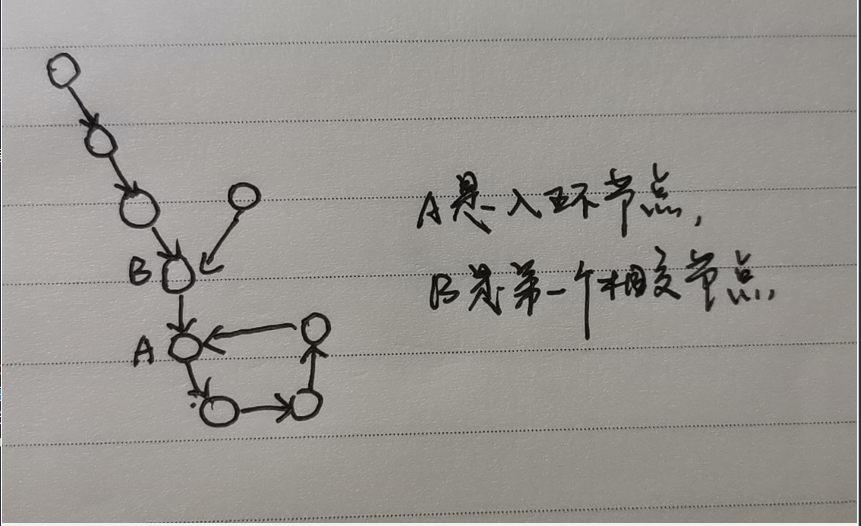 A是入环节点,
B是第一个相交节点.
B
A